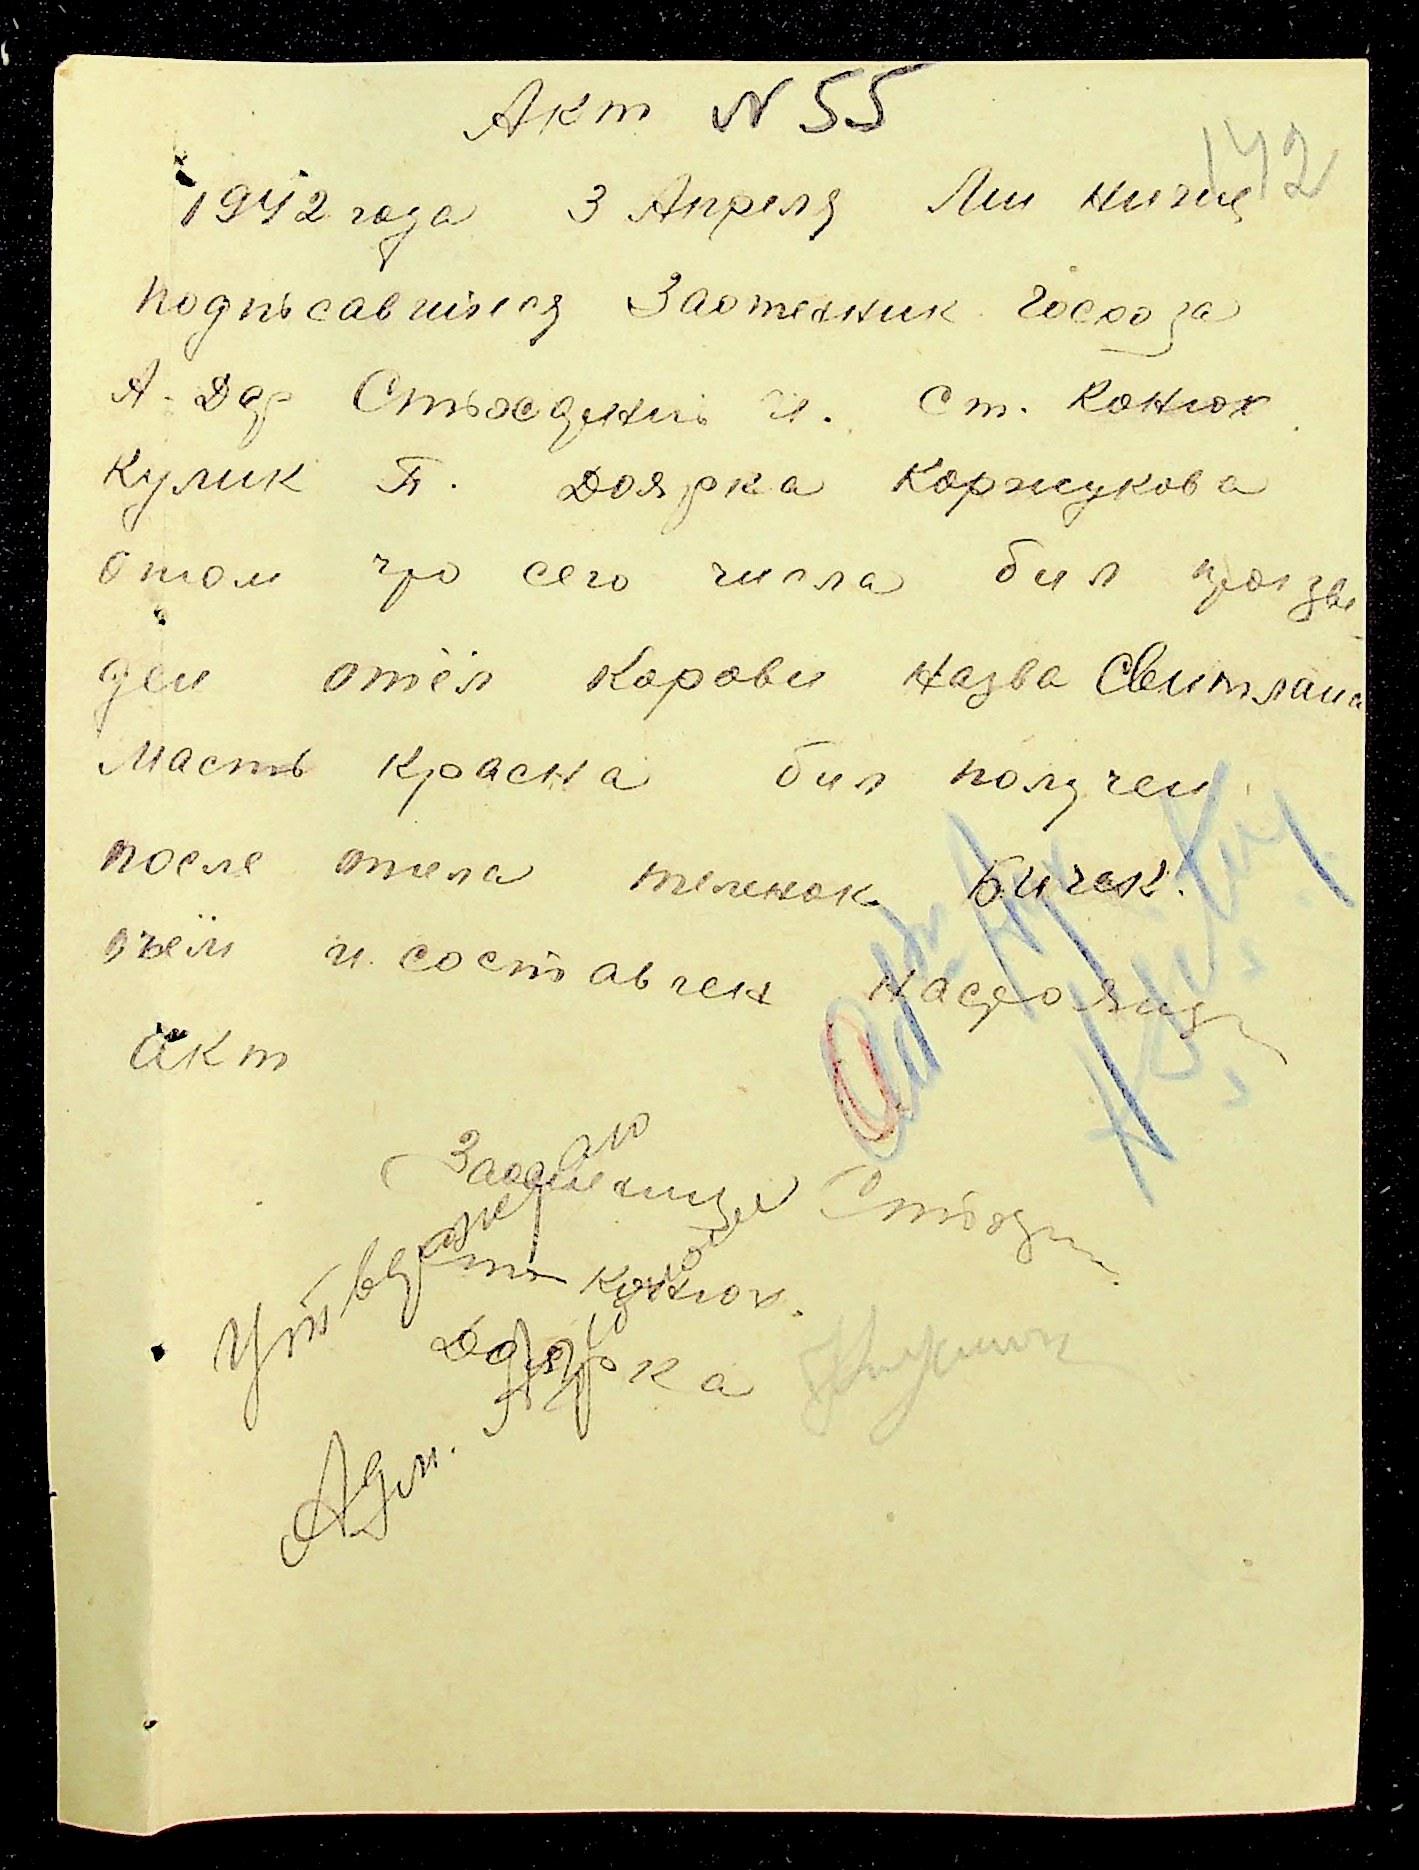 Акт N 55
142
1942 года 3 Апреля Ми ниже
подписавшиеся Заотехник Госхоза
А-Дар Стьождинь И. Ст. Конюх
Кулик П. Доярка Коржукова
отом что сего числа бил произве
ден отёл Корови Назва Свитлана
Масть Красна бил получен
после отела теленок Бичек.
очём и составлен настоящ
акт
Ст. Конюх.
Доярка
Утверждаю
Адм.